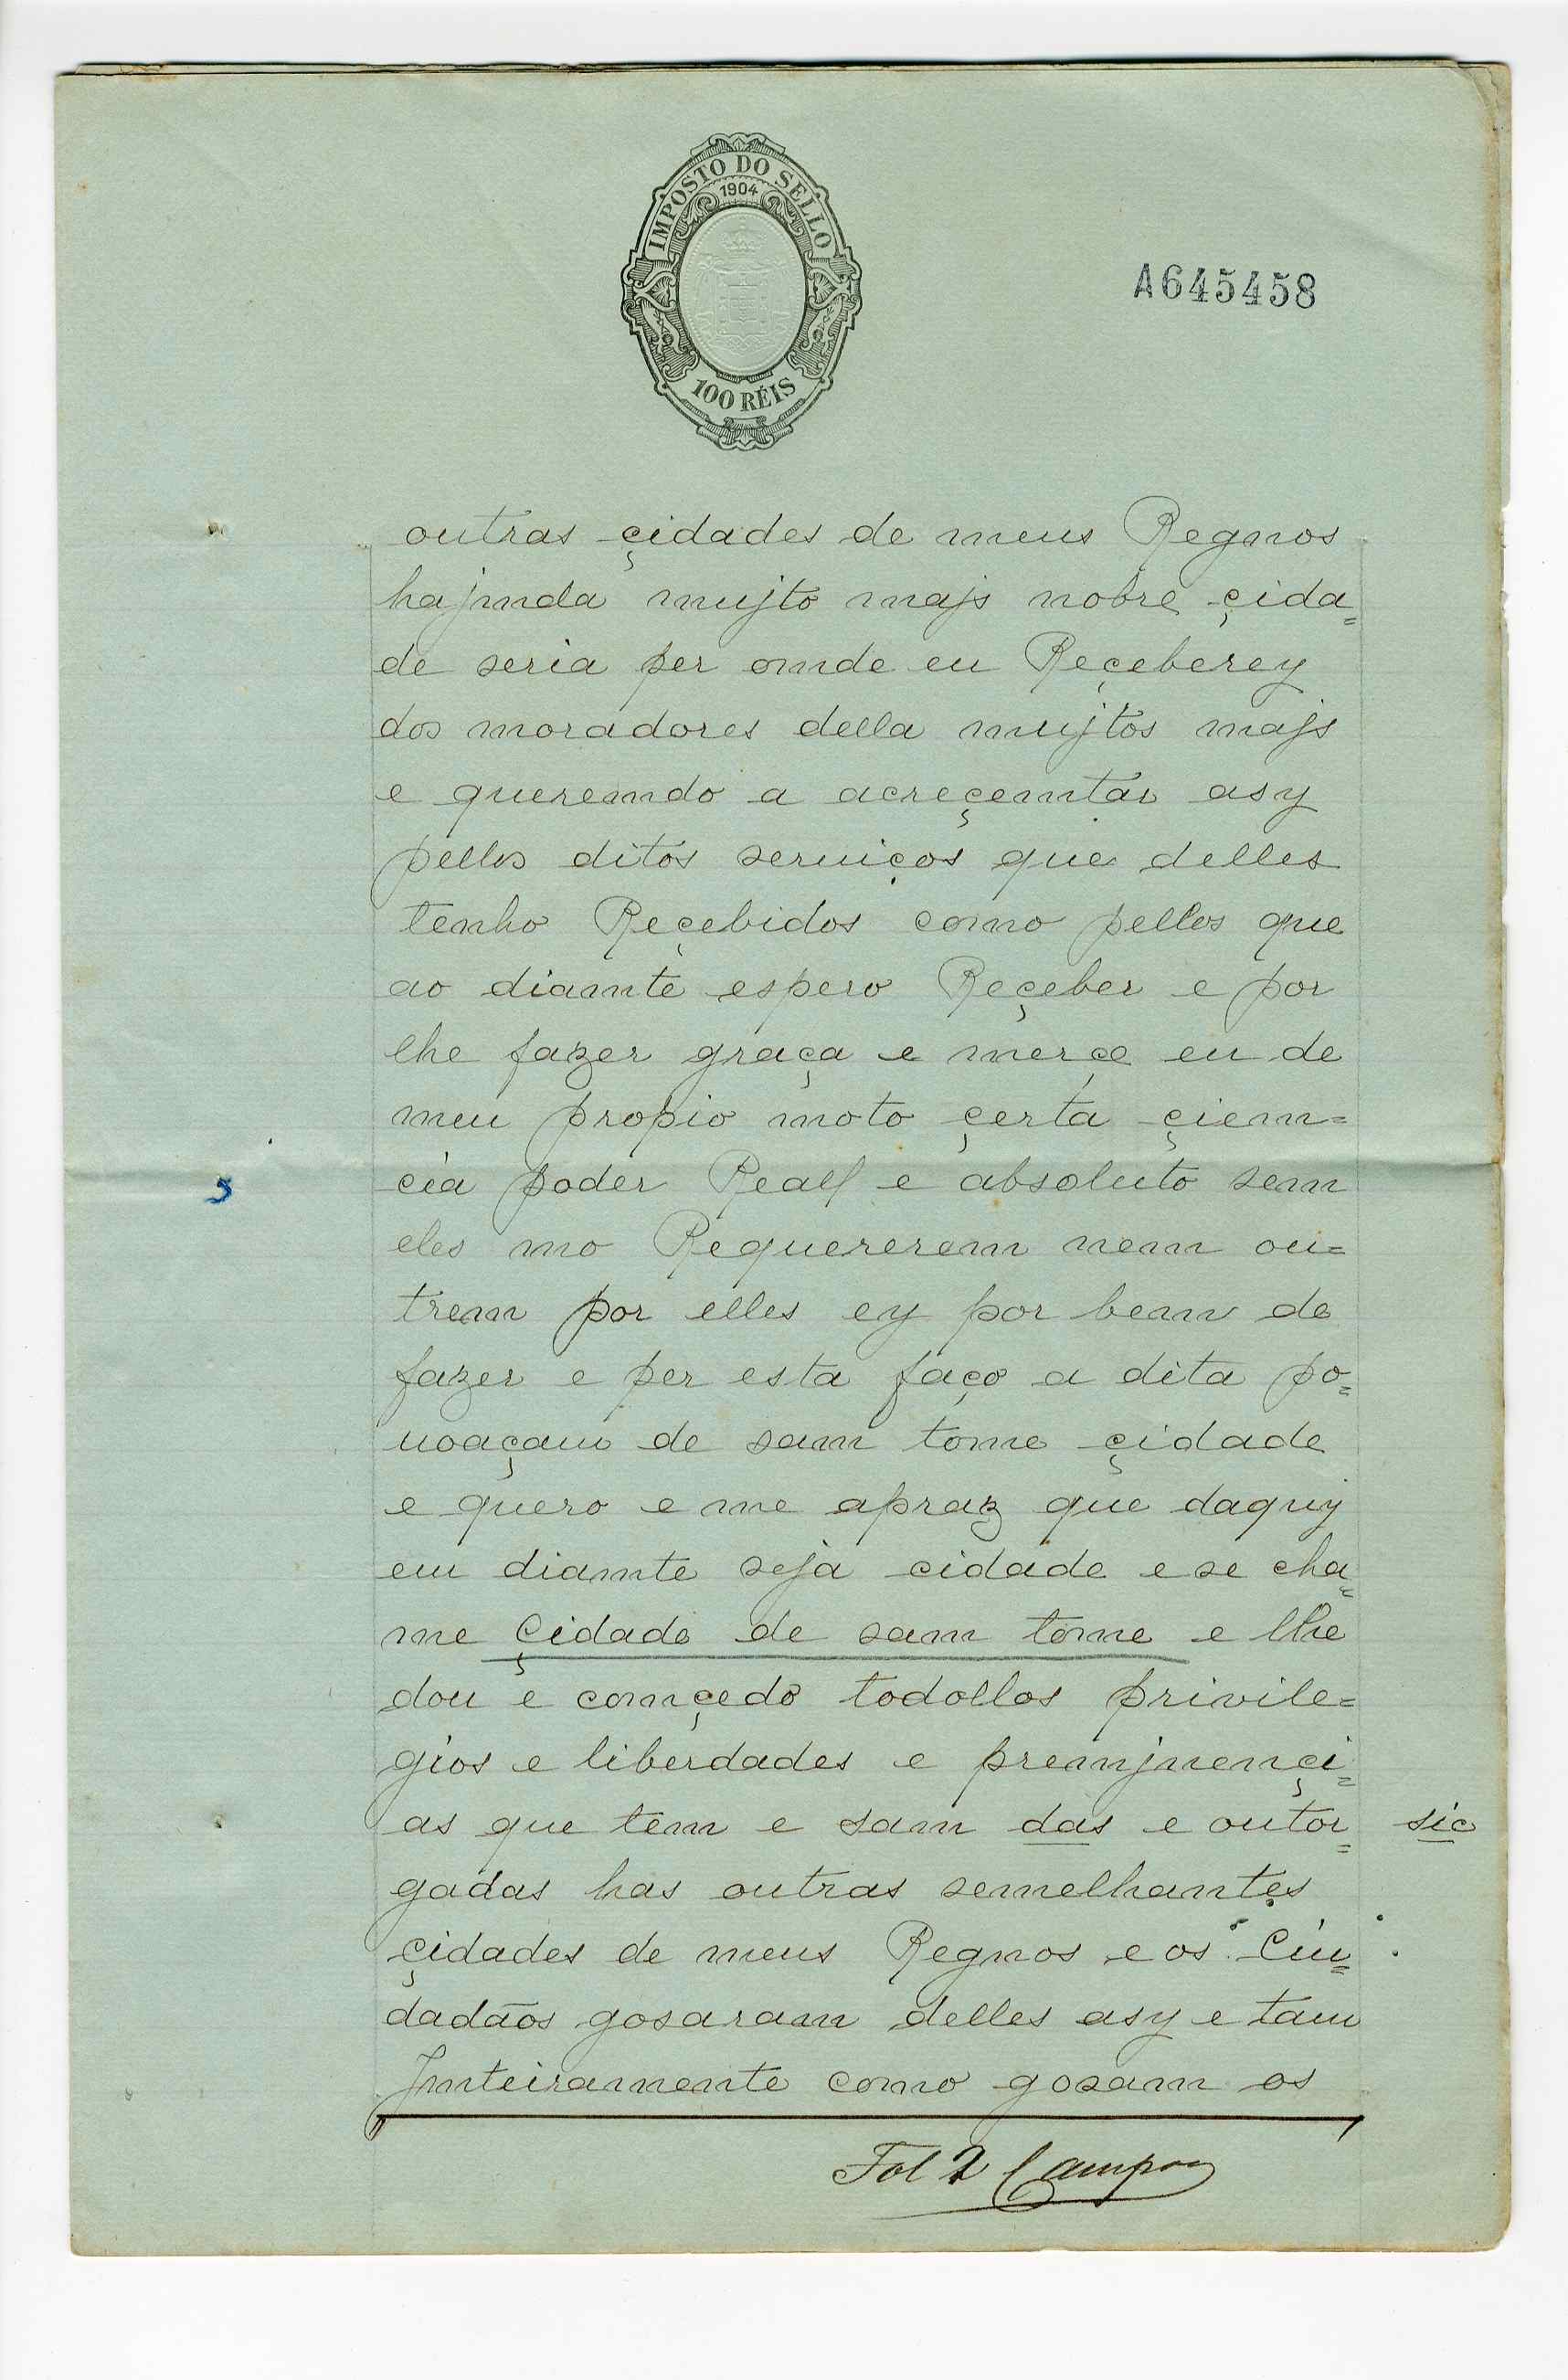 IMPOSTO DO SELLO
1904
100 RÉIS
A645458
outras çidades de meus Regnos
hajmda mujto majs nobre çida=
de seria per omde eu Reçeberey
dos moradores della mujtos majs
e queremdo a acreçemtar asy
pellos ditos seruiços que delles
tenho Reçebidos como pellos que
ao diamte espero Reçeber e por
lhe fazer graça e merçe eu de
meu propio moto çerta çiem=
cia poder Reall e absoluto sem
eles mo Requererem nem ou=
trem por elles ey por bem de
fazer e per esta faço a dita po=
uoaçam de sam tome çidade
e quero e me apraz que daquy
em diamte seja cidade e se cha=
me Çidade de sam tome e lhe
dou e comçedo todollos privile=
gios e liberdades e premjnençi=
as que tem e sam das e outor= sic
gadas has outras semelhantes
çidades de meus Regnos e os Ciu=
dadãos gosaram delles asy e tam
Jmteiramente como gosam os
Fol 2 Campos
5